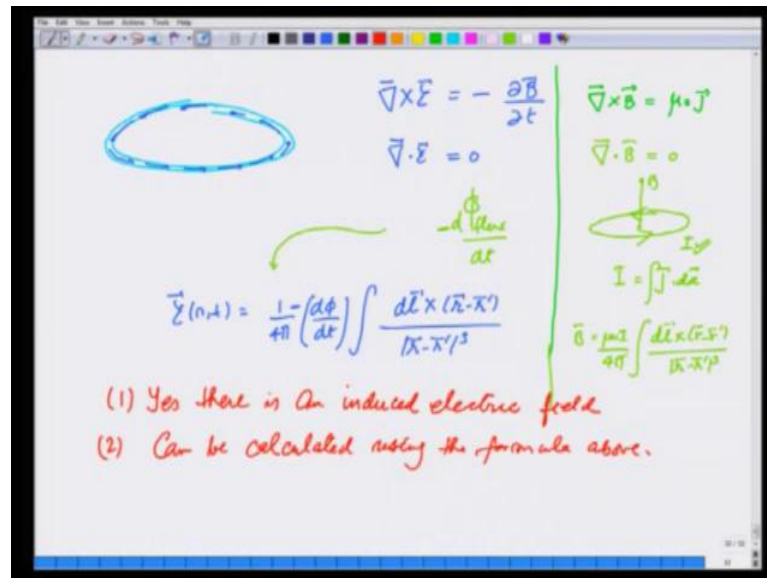 File Edit View Insert Actions Tools Help
∇⃗×ℰ⃗ = − ∂B⃗/∂t
∇⃗·ℰ⃗ = 0
−dϕ_flux/dt
ℰ⃗(r,t) = 1/4π −(dϕ/dt) ∫ dl⃗×(r̄−r̄′)/|r̄−r̄′|³
∇⃗×B⃗ = μ₀J⃗
∇⃗·B⃗ = 0
B
I
I = ∫J⃗·da⃗
B⃗ = μ₀I/4π ∫ dl⃗×(r̄−r̄′)/|r̄−r̄′|³
(1) Yes there is an induced electric field
(2) Can be calculated using the formula above.